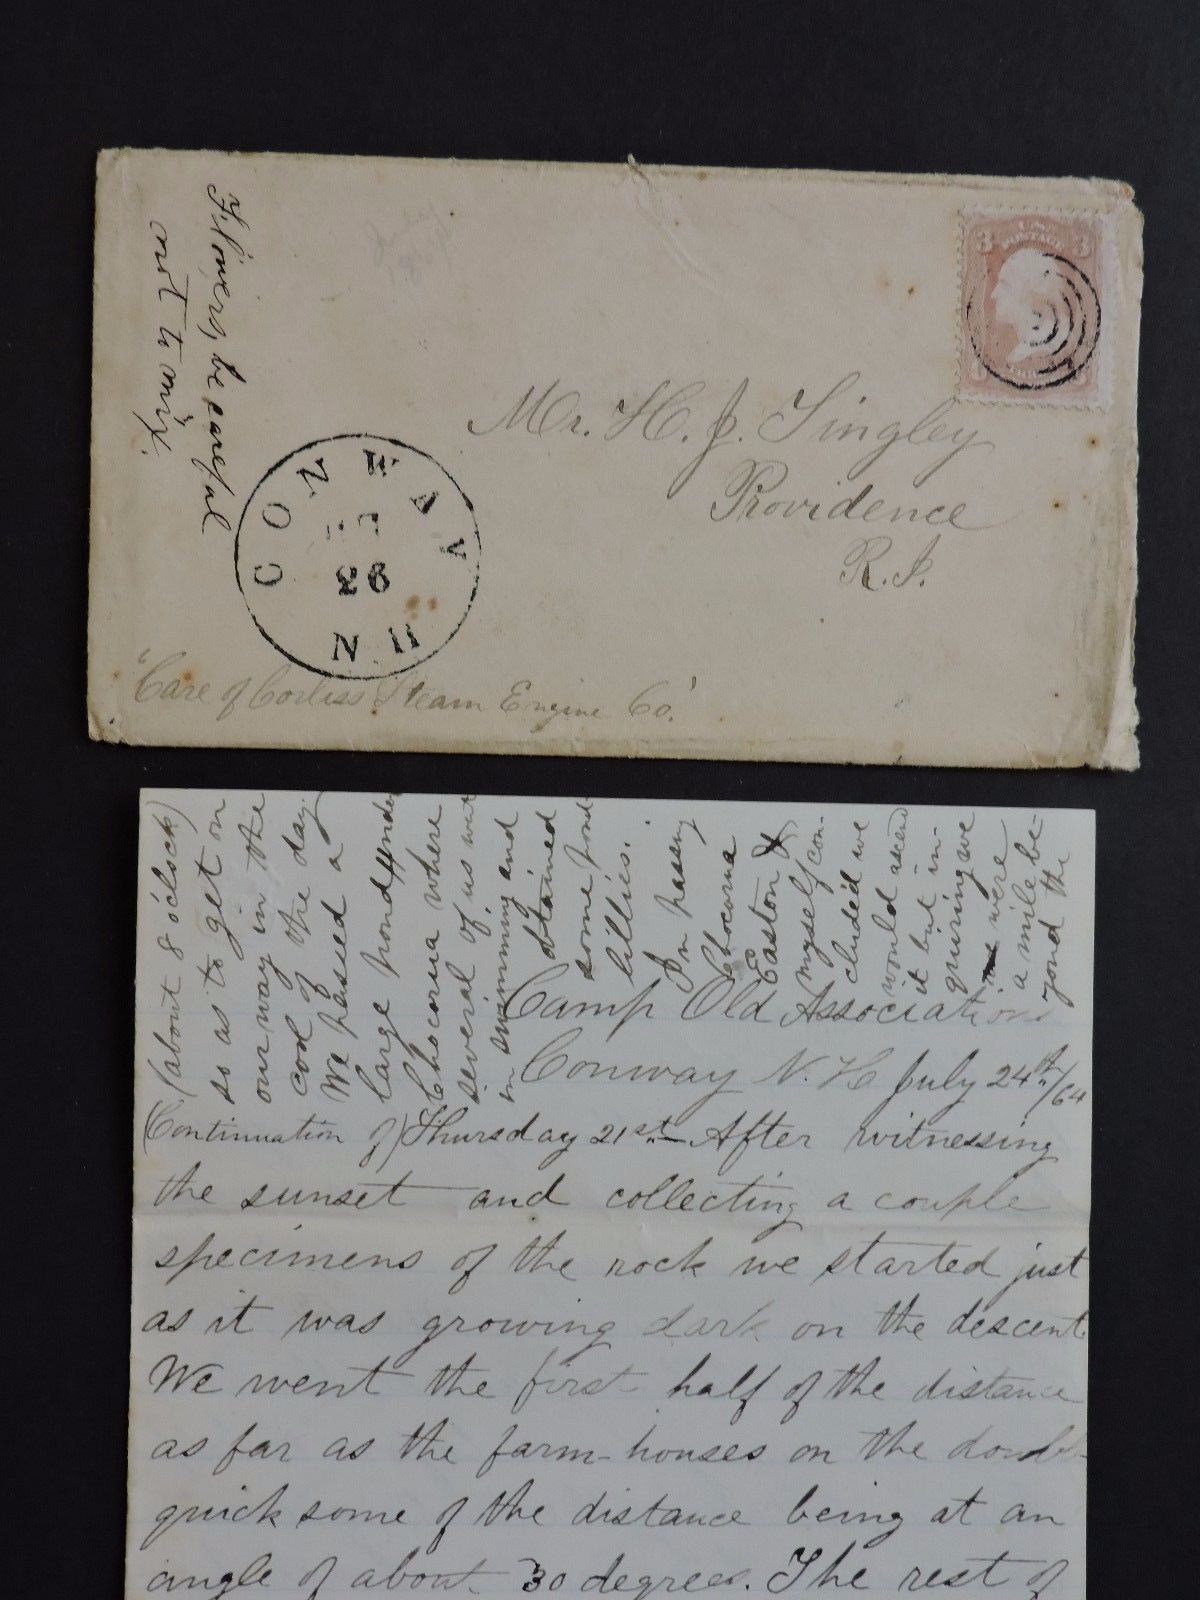 Flowers, be careful
not to mix.
U.S.
POSTAGE
3 3
Mr. H. J. Tingley
Providence
R. I.
CONWAY
26
N H
"Care of Corliss Steam Engine Co."
(about 8 o'clock)
so as to get on
our way in the
cool of the day.
We passed a
large pond
Chocorua where
several of us went
in swimming and
obtained
some pond
lillies.
In passing
Chocorua
Easton &
myself con-
cluded we
would ascend
it but in-
quiring we
were
a mile be-
yond the
Camp Old Association
Conway N. H. July 24th/64
(Continuation of) Thursday 21st- After witnessing
the sunset and collecting a couple
specimens of the rock we started just
as it was growing dark on the descent.
We went the first half of the distance
as far as the farm-houses on the double-
quick some of the distance being at an
angle of about 30 degrees. The rest of